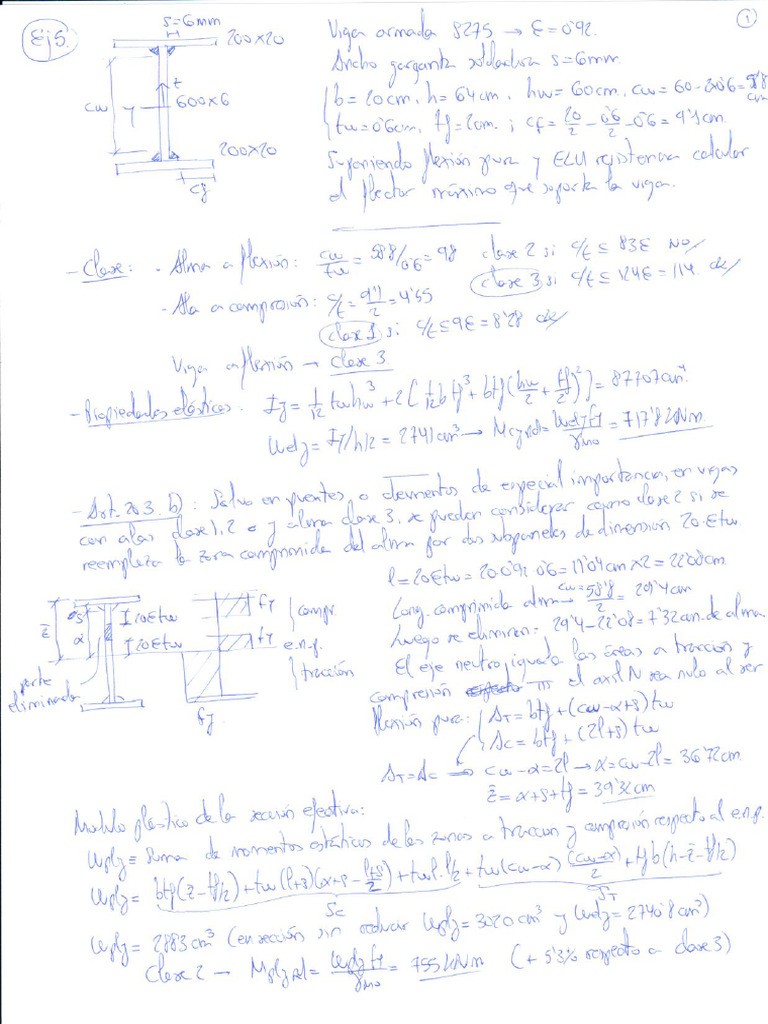 Ej5.
1
s=6mm
200x20
cw
y
z
600x6
200x20
cf
Viga armada S275 → ε=0'92.
Ancho garganta soldadura s=6mm.
b=20cm, h=64cm, hw=60cm, cw=60-2·0'6=58'8 cm
tw=0'6cm, tf=2cm. ; cf=20/2-0'6/2-0'6=9'1cm.
Suponiendo flexión pura y ELU resistencia calcular
el flector máximo que soporta la viga.
- Clase: - Alma a flexión: cw/tw = 58'8/0'6 = 98 clase 2 si c/t ≤ 83ε NO/
clase 3, si c/t ≤ 124ε = 114 ok/
- Ala a compresión: c/t = 9'1/2 = 4'55
clase 1 si c/t ≤ 9ε = 8'28 ok/
Viga a flexión → clase 3
- Propiedades elásticas: Iy = 1/12 tw hw³ + 2[1/12 b tf³ + b tf (hw/2 + tf/2)²] = 87707cm⁴
Wel,y = Iy/h/2 = 2741cm³ → Mc,y,Rd = Wel,y fy/γM0 = 717'8 kNm.
- Art. 20.3. b): Salvo en puentes, o elementos de especial importancia, en vigas
con alas clase 1, 2 y alma clase 3, se pueden considerar como clase 2 si se
reemplaza la zona comprimida del alma por dos subpaneles de dimensión 20·ε tw.
l = 20ε tw = 20·0'92·0'6 = 11'04cm x2 = 22'08cm
Long. comprimida alma → cw=58'8/2 = 29'4cm
Luego se eliminan: 29'4-22'08 = 7'32cm. de alma
El eje neutro, iguala las áreas a tracción y
compresión el axil N sea nulo al ser
flexión pura: AT = b tf + (cw-α+s) tw
AC = b tf + (2l+s) tw
AT = AC → cw-α = 2l → α = cw-2l = 36'72cm
z̄ = α+s+tf = 39'32cm
z̄
s
α
20εtw
20εtw
parte
eliminada
fy
fy
compr
e.n.p.
tracción
fy
Modulo plástico de la sección efectiva:
Wpl,y ≡ Suma de momentos estáticos de las zonas a tracción y compresión respecto al e.n.p.
Wpl,y = b tf (z̄-tf/2) + tw (l+s)(α+s-(l+s)/2) + tw l·l/2 + tw (cw-α) (cw-α)/2 + tf b (h-z̄-tf/2)
SC
ST
Wpl,y = 2883cm³ (en sección sin reducir Wpl,y = 3020cm³ y Wel,y = 2740'8cm³)
Clase 2 → Mpl,y,Rd = Wpl,y fy/γM0 = 755kNm (+5'3% respecto a clase 3)